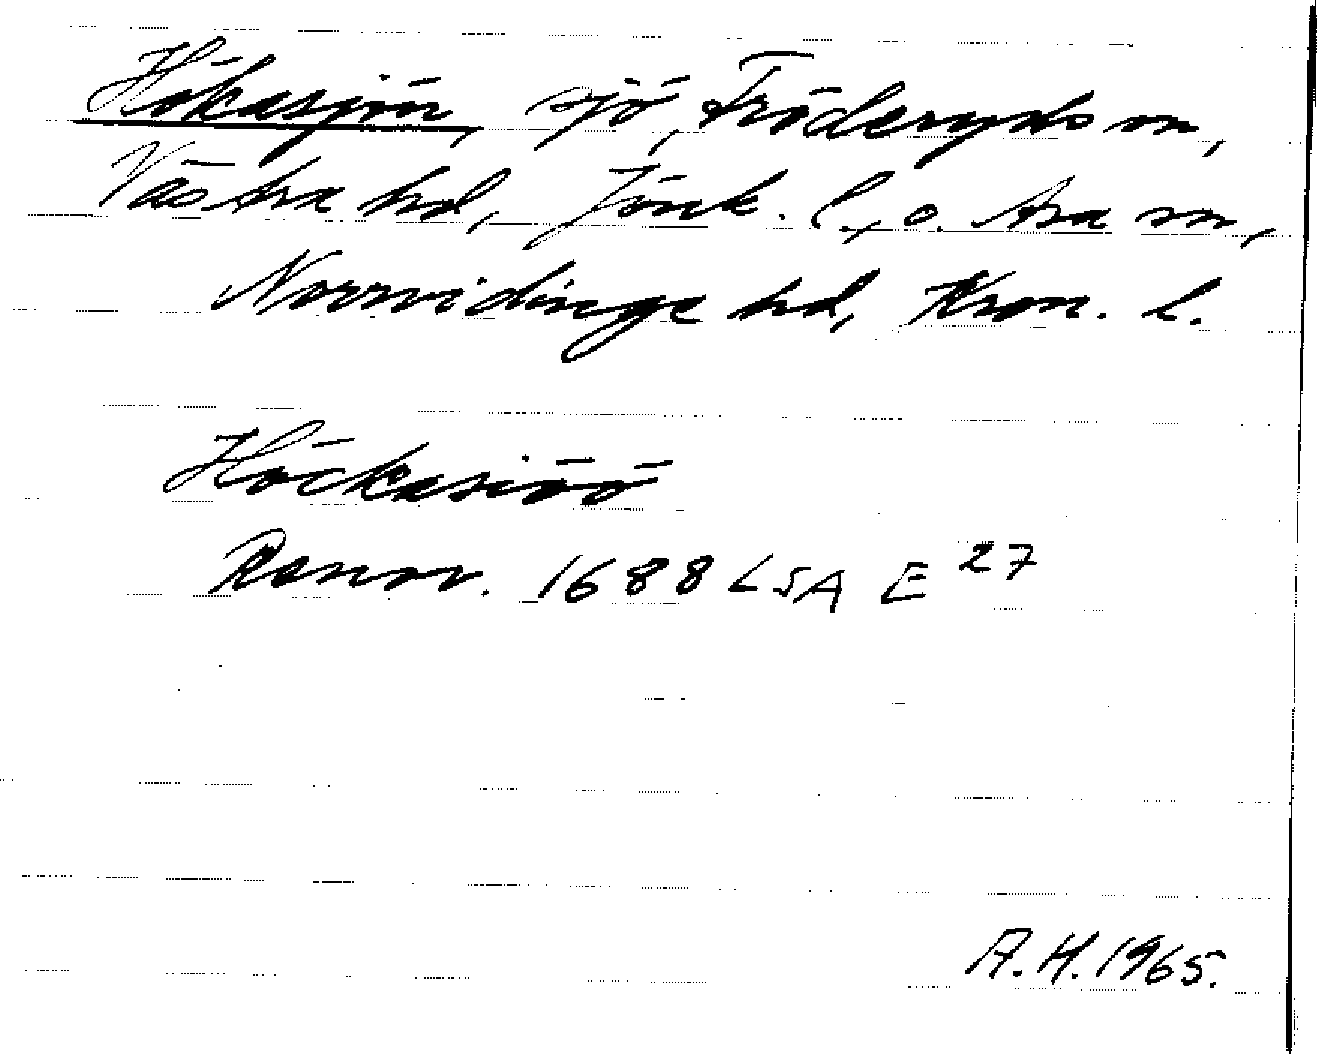 Hökasjön, sjö, Fröderyds sn,
Västra hd, Jönk. l., o. Asa sn,
Norrvidinge hd, Kron. l.
Höckasiöö
Renov. 1688 LSA E 27
A.H. 1965.